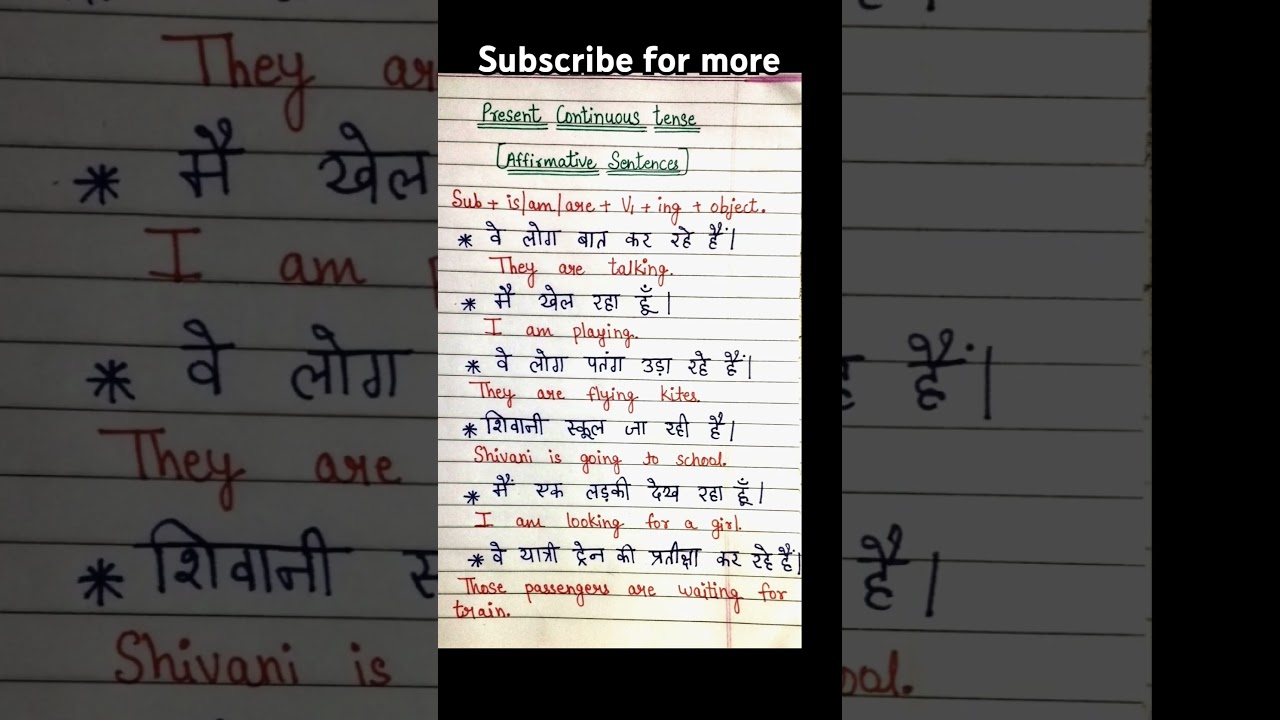 Subscribe for more
Present Continuous tense
[Affirmative Sentences]
Sub + is/am/are + V₁ + ing + object.
* वे लोग बात कर रहे हैं।
They are talking.
* मै खेल रहा हूँ।
I am playing.
* वे लोग पतंग उड़ा रहे हैं।
They are flying kites.
* शिवानी स्कूल जा रही है।
Shivani is going to school.
* मैं एक लड़की देख रहा हूँ।
I am looking for a girl.
* वे यात्री ट्रेन की प्रतीक्षा कर रहे हैं।
Those passengers are waiting for
train.